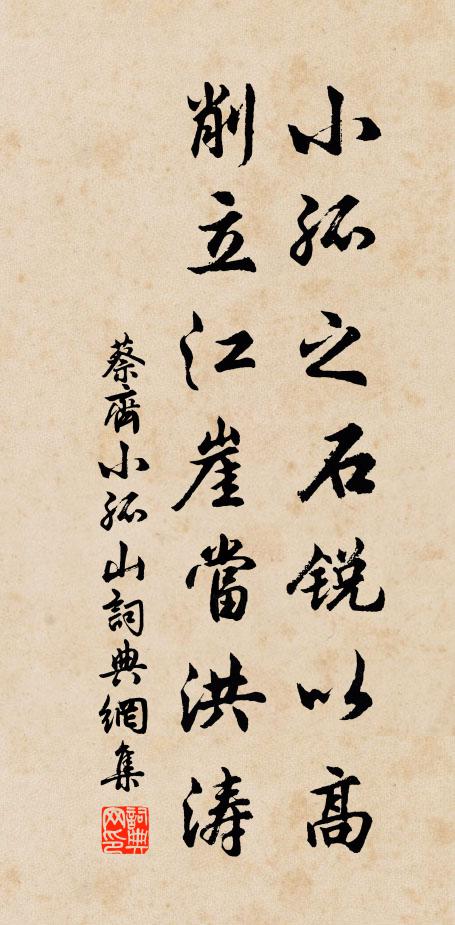 小孤之石銳以高
削立江崖當洪濤
蔡齊小孤山詞典網集
詞典網印